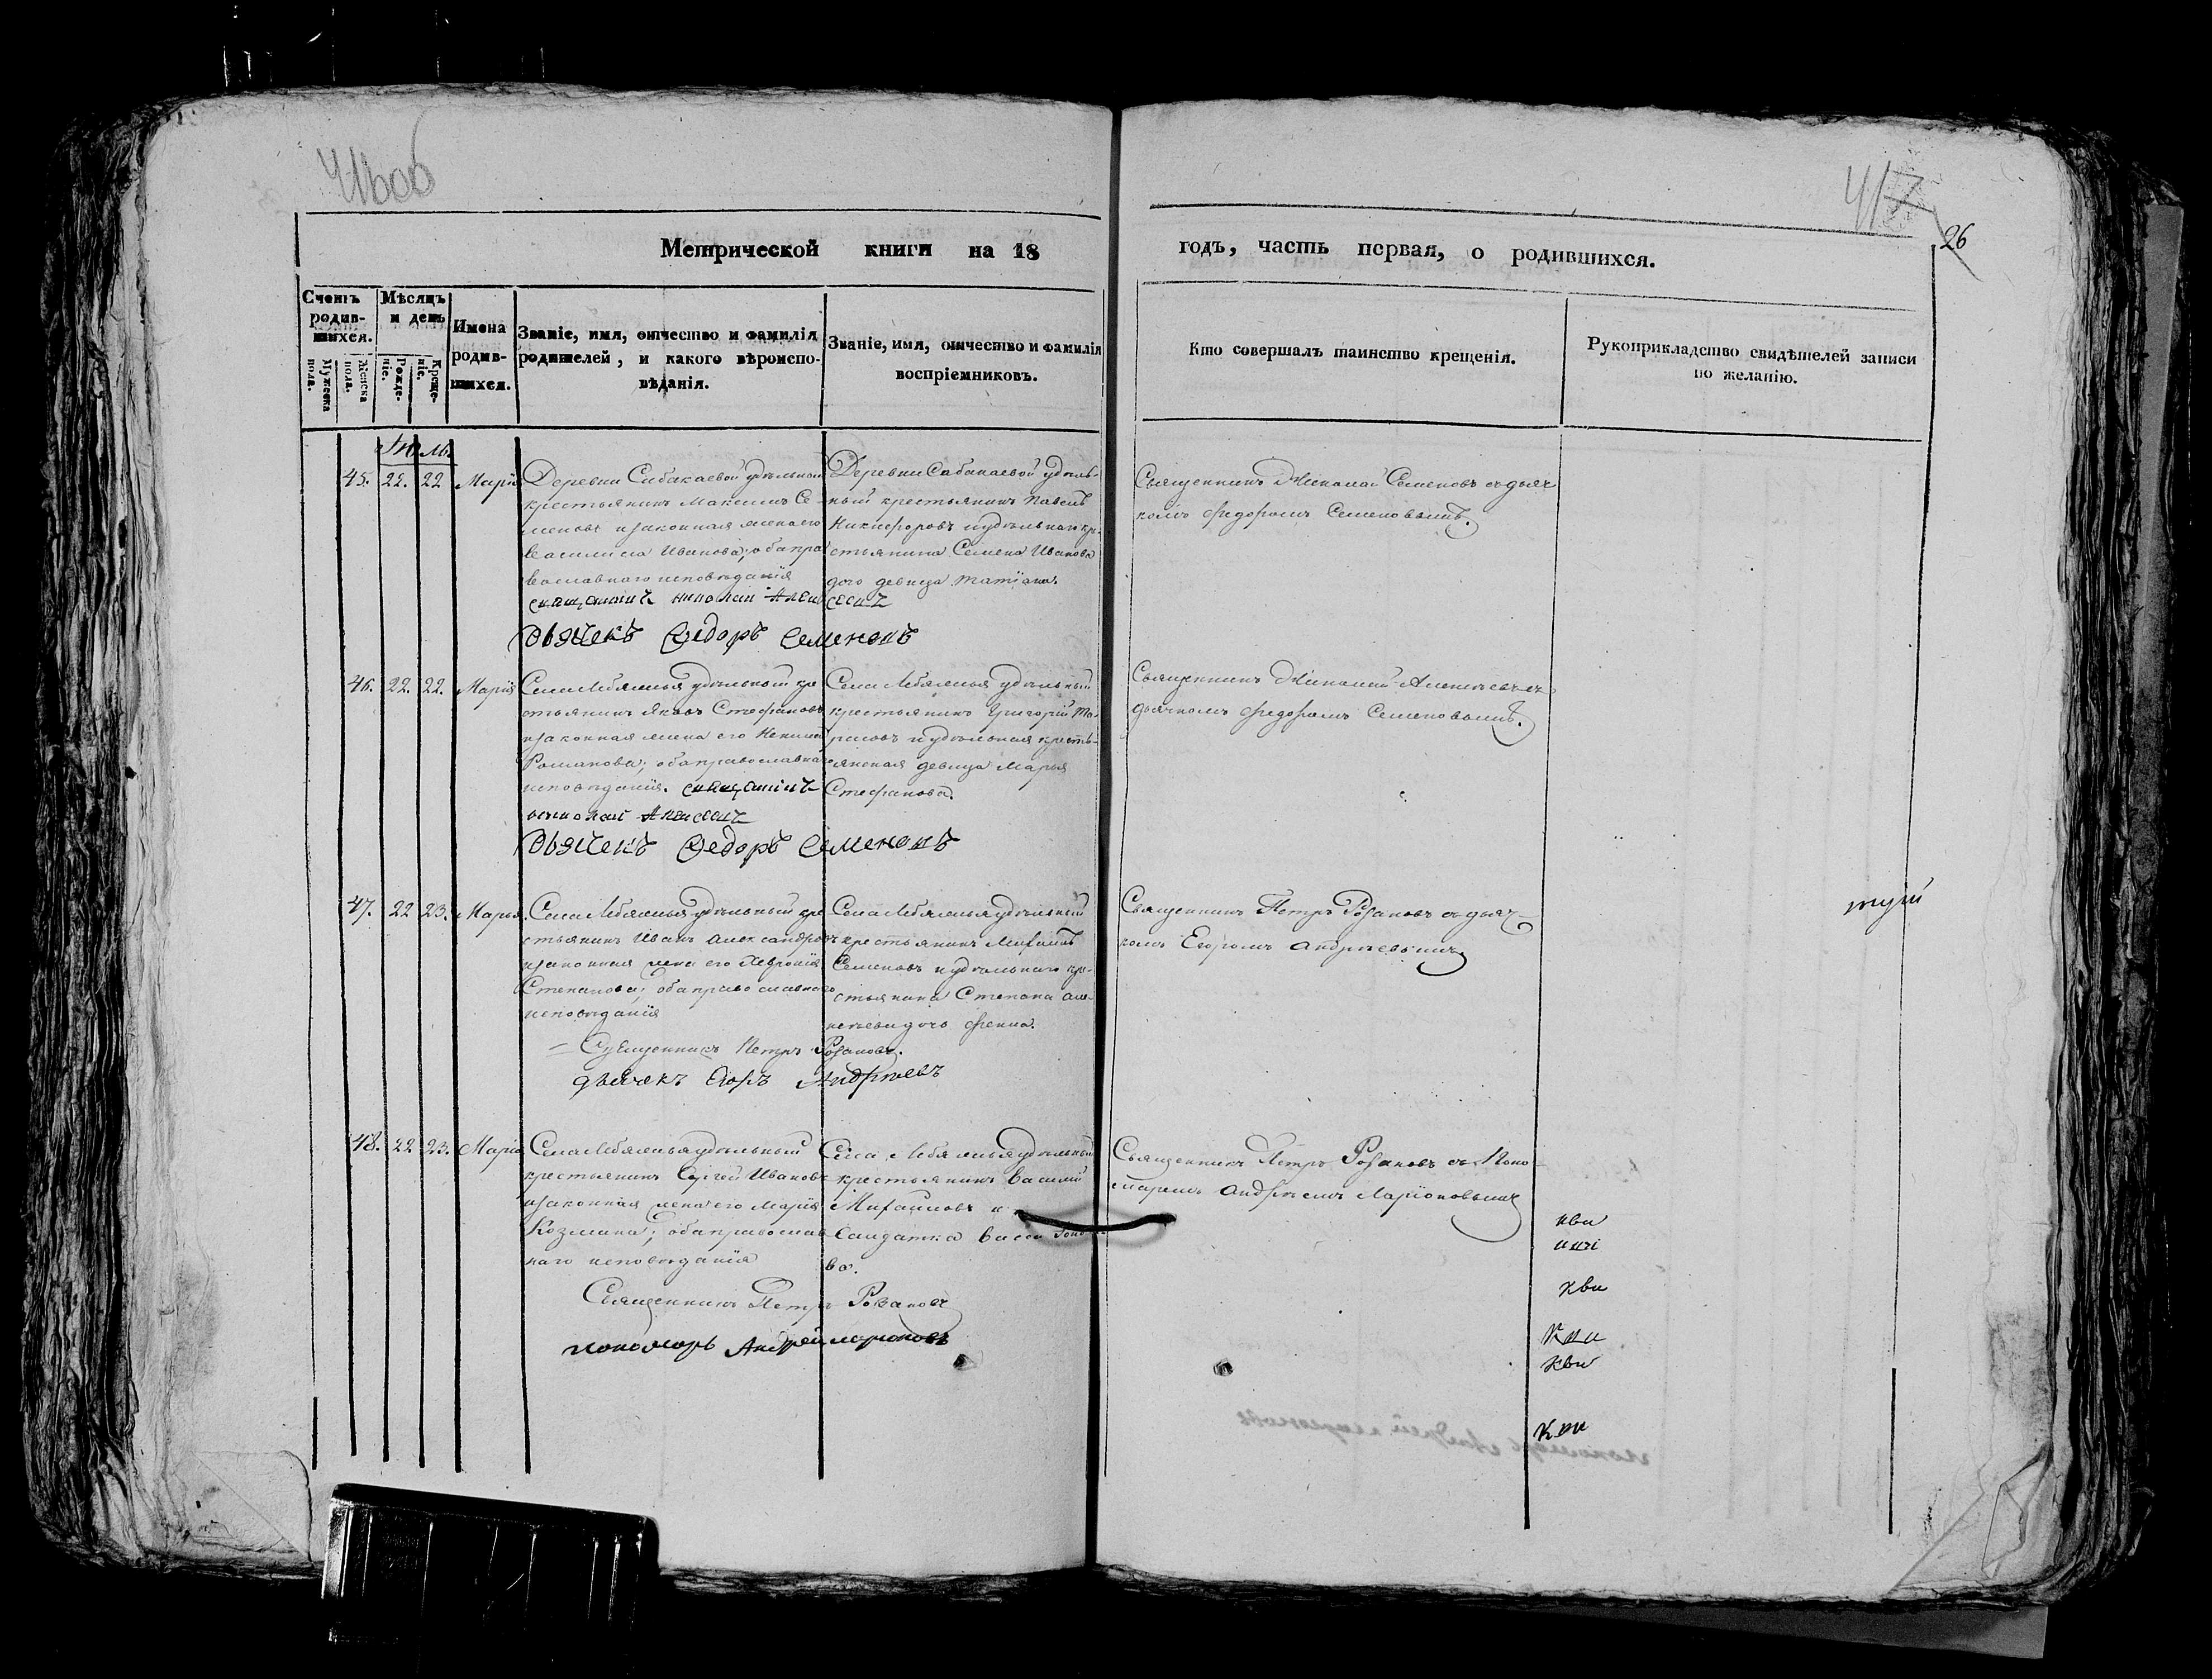 416об
417
26
Метрической книги на 18
годъ, часть первая, о родившихся.
Счетъ родив-
шихся.
Мужеска пола.
Женска пола.
Мѣсяцъ
и день
Рожде-
ніе.
Креще-
ніе.
Имена
родив-
шихся.
Званіе, имя, отчество и фамилія
родителей, и какого вѣроиспо-
вѣданія.
Званіе, имя, отчество и фамилія
воспріемниковъ.
Кто совершалъ таинство крещенія.
Рукоприкладство свидѣтелей записи
по желанію.
Іюль
45. 22. 22
Марія
Деревни Сабакаевой удѣльной
крестьянинъ Максимъ Се-
меновъ и законная жена его
Василиса Иванова; оба пра
вославнаго исповѣданія
священникъ николай Алексеевъ
Дьячекъ Федоръ Семеновъ
Деревни Сабакаевой удѣль-
ный крестьянинъ Павелъ
Никифоровъ и удѣльнаго кре-
стьянина Семена Иванова
дочь девица Татіана.
Священникъ Николай Семеновъ съ дьяч
комъ Федоромъ Семеновымъ.
46. 22. 22.
Марія
Села Лебяжья удѣльный кре
стьянинъ Яковъ Стефановъ
и законная жена его
Романова; оба православна
исповѣданія. священникъ
николай Алексеевъ
Дьячекъ Федоръ Семеновъ
Села Лебяжья удѣльный
крестьянинъ Григорій
и удѣльная кресть-
янская девица Марья
Стефанова.
Священникъ Николай Алексѣевъ съ
дьячкомъ Федоромъ Семеновымъ.
47. 22 23.
Марья.
Села Лебяжья удѣльный кре
стьянинъ Иванъ Александровъ
и законная жена его Февронія
Степанова; оба православнаго
исповѣданія
Священникъ Петръ Розановъ.
дьячекъ Егоръ Андрѣевъ
Села Лебяжья удѣльный
крестьянинъ Михаилъ
Семеновъ и удѣльнаго кре-
стьянина Степана Але-
ксѣева дочь Фекла.
Священникъ Петръ Розановъ съ дьяч-
комъ Егоромъ Андрѣевымъ
48. 22 23.
Марія
Села Лебяжья удѣльный
крестьянинъ Сергей Ивановъ
и законная жена его Марія
Козмина; оба православ
наго исповѣданія
Священникъ Петръ Розановъ
пономарь Андрей Ларионовъ
Села Лебяжья удѣльный
крестьянинъ Василій
Михаиловъ и
Салдатка
ва.
Священникъ Петръ Розановъ съ Поно-
маремъ Андрѣемъ Ларіоновымъ